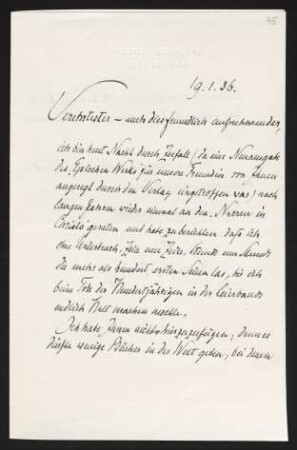 45
19. 1. 36.
Verehrtester – auch dies freundlich aufnehmender,
ich bin heut Nacht durch Zufall (da eine Neuausgabe
des Epischen Werks für unsere Freundin von Ihnen
angeregt durch den Verlag eingetroffen war) nach
langen Jahren wieder einmal an den Narren in
Christo geraten und habe zu berichten dass ich
ohne Unterbruch, Zeile um Zeile, Stunde um Stunde
die mehr als hundert ersten Seiten las, bis ich
beim Tode der Hundertjährigen in der
endlich Halt machen
Ich habe Ihnen nichts hinzuzufügen, denn es
dürften wenige Bücher in der Welt geben, bei denen